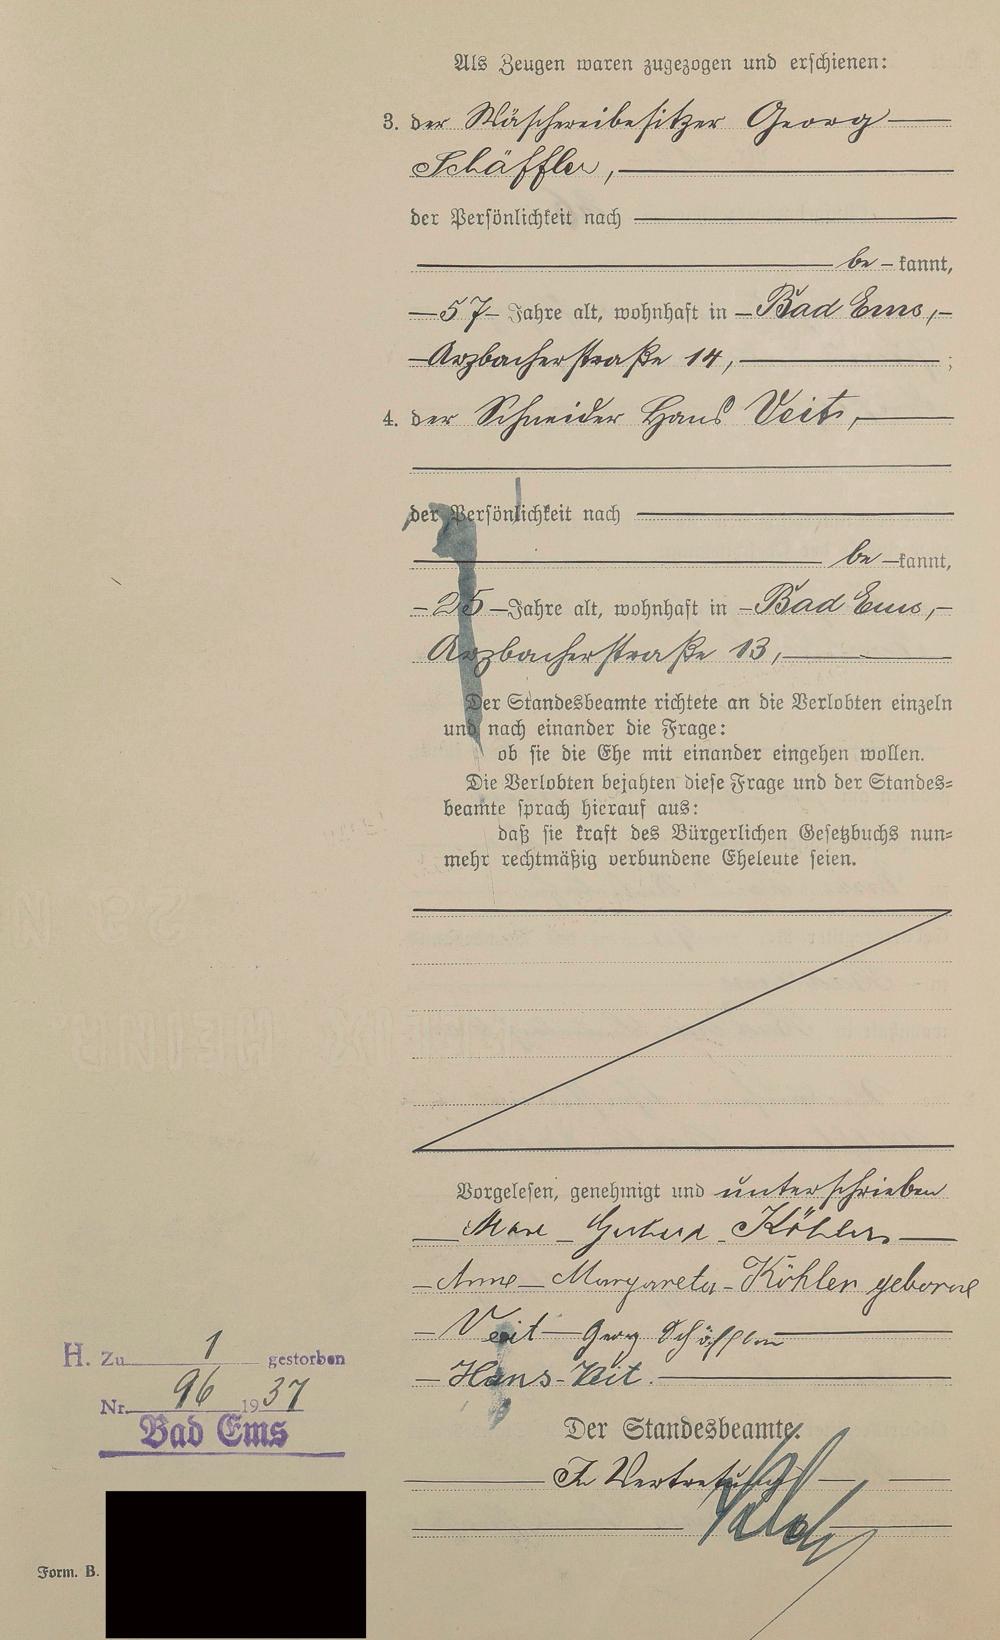 Als Zeugen waren zugezogen und erschienen:
3. der Wäschereibesitzer Georg
Schäffler,
der Persönlichkeit nach
be-kannt,
57 Jahre alt, wohnhaft in Bad Ems,
Arzbacherstraße 14, ;
4. der Schneider Hans Veit,
der Persönlichkeit nach
be-kannt,
25 Jahre alt, wohnhaft in Bad Ems,
Arzbacherstraße 13,
Der Standesbeamte richtete an die Verlobten einzeln
und nach einander die Frage:
ob sie die Ehe mit einander eingehen wollen.
Die Verlobten bejahten diese Frage und der Standes=
beamte sprach hierauf aus:
daß sie kraft des Bürgerlichen Gesetzbuchs nun=
mehr rechtmäßig verbundene Eheleute seien.
Vorgelesen, genehmigt und unterschrieben
Gerhard Köhler
Anna Margareta Köhler geborne
Veit Georg Schäffler
Hans Veit.
Der Standesbeamte.
In Vertretung
H. Zu 1 gestorben
Nr. 96 1937
Bad Ems
Form. B.